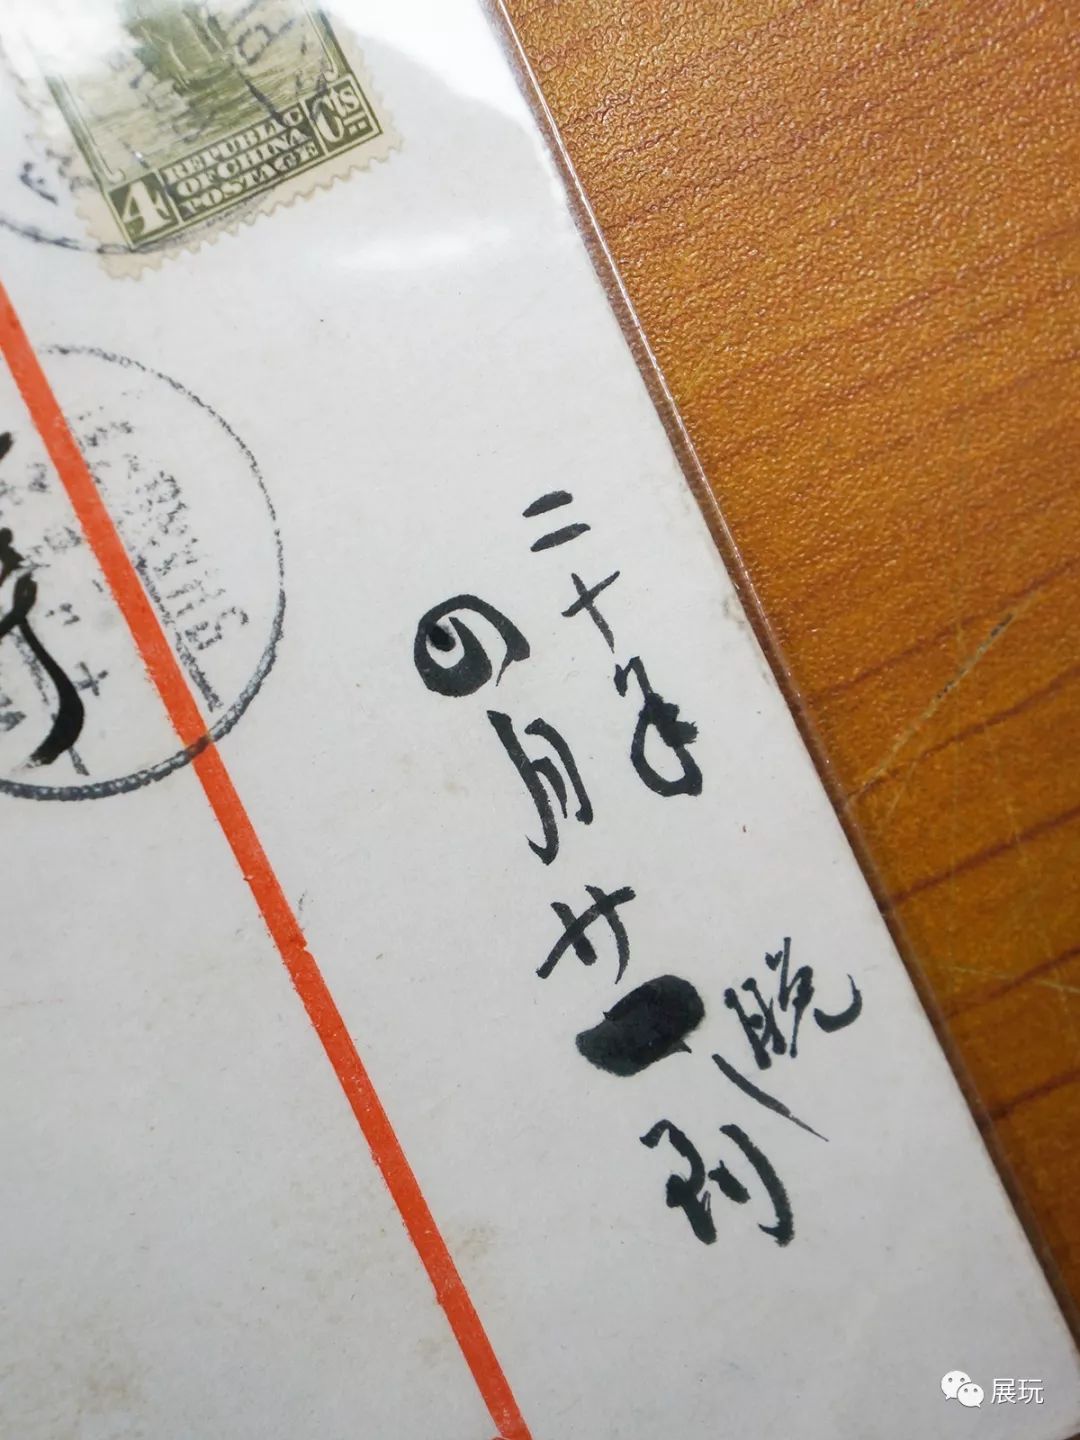 4
REPUBLIC
OF CHINA
POSTAGE
Cts
SHANGHAI
二十年
四月廿
晚
到
展玩